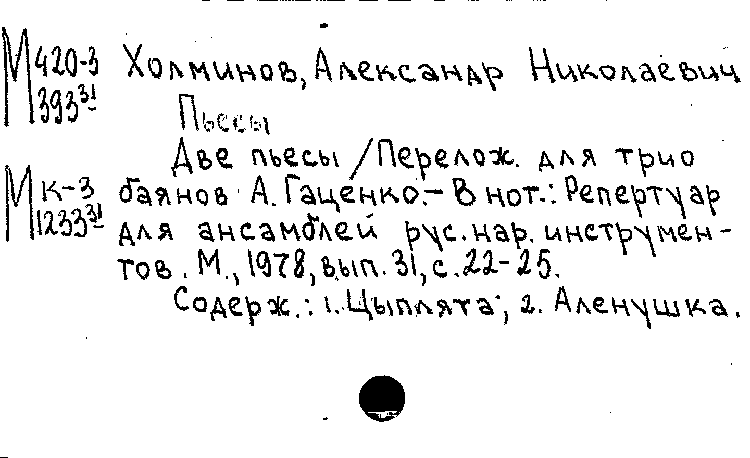 М 420-3
393 31
Холминов, Александр Николаевич
Пьесы
Две пьесы / Перелож. для трио
М К-3
1233 31
баянов А. Гаценко. – В нот.: Репертуар
для ансамблей рус. нар. инструмен-
тов. М., 1978, вып. 31, с. 22-25.
Содерж.: 1. Цыплята; 2. Аленушка.